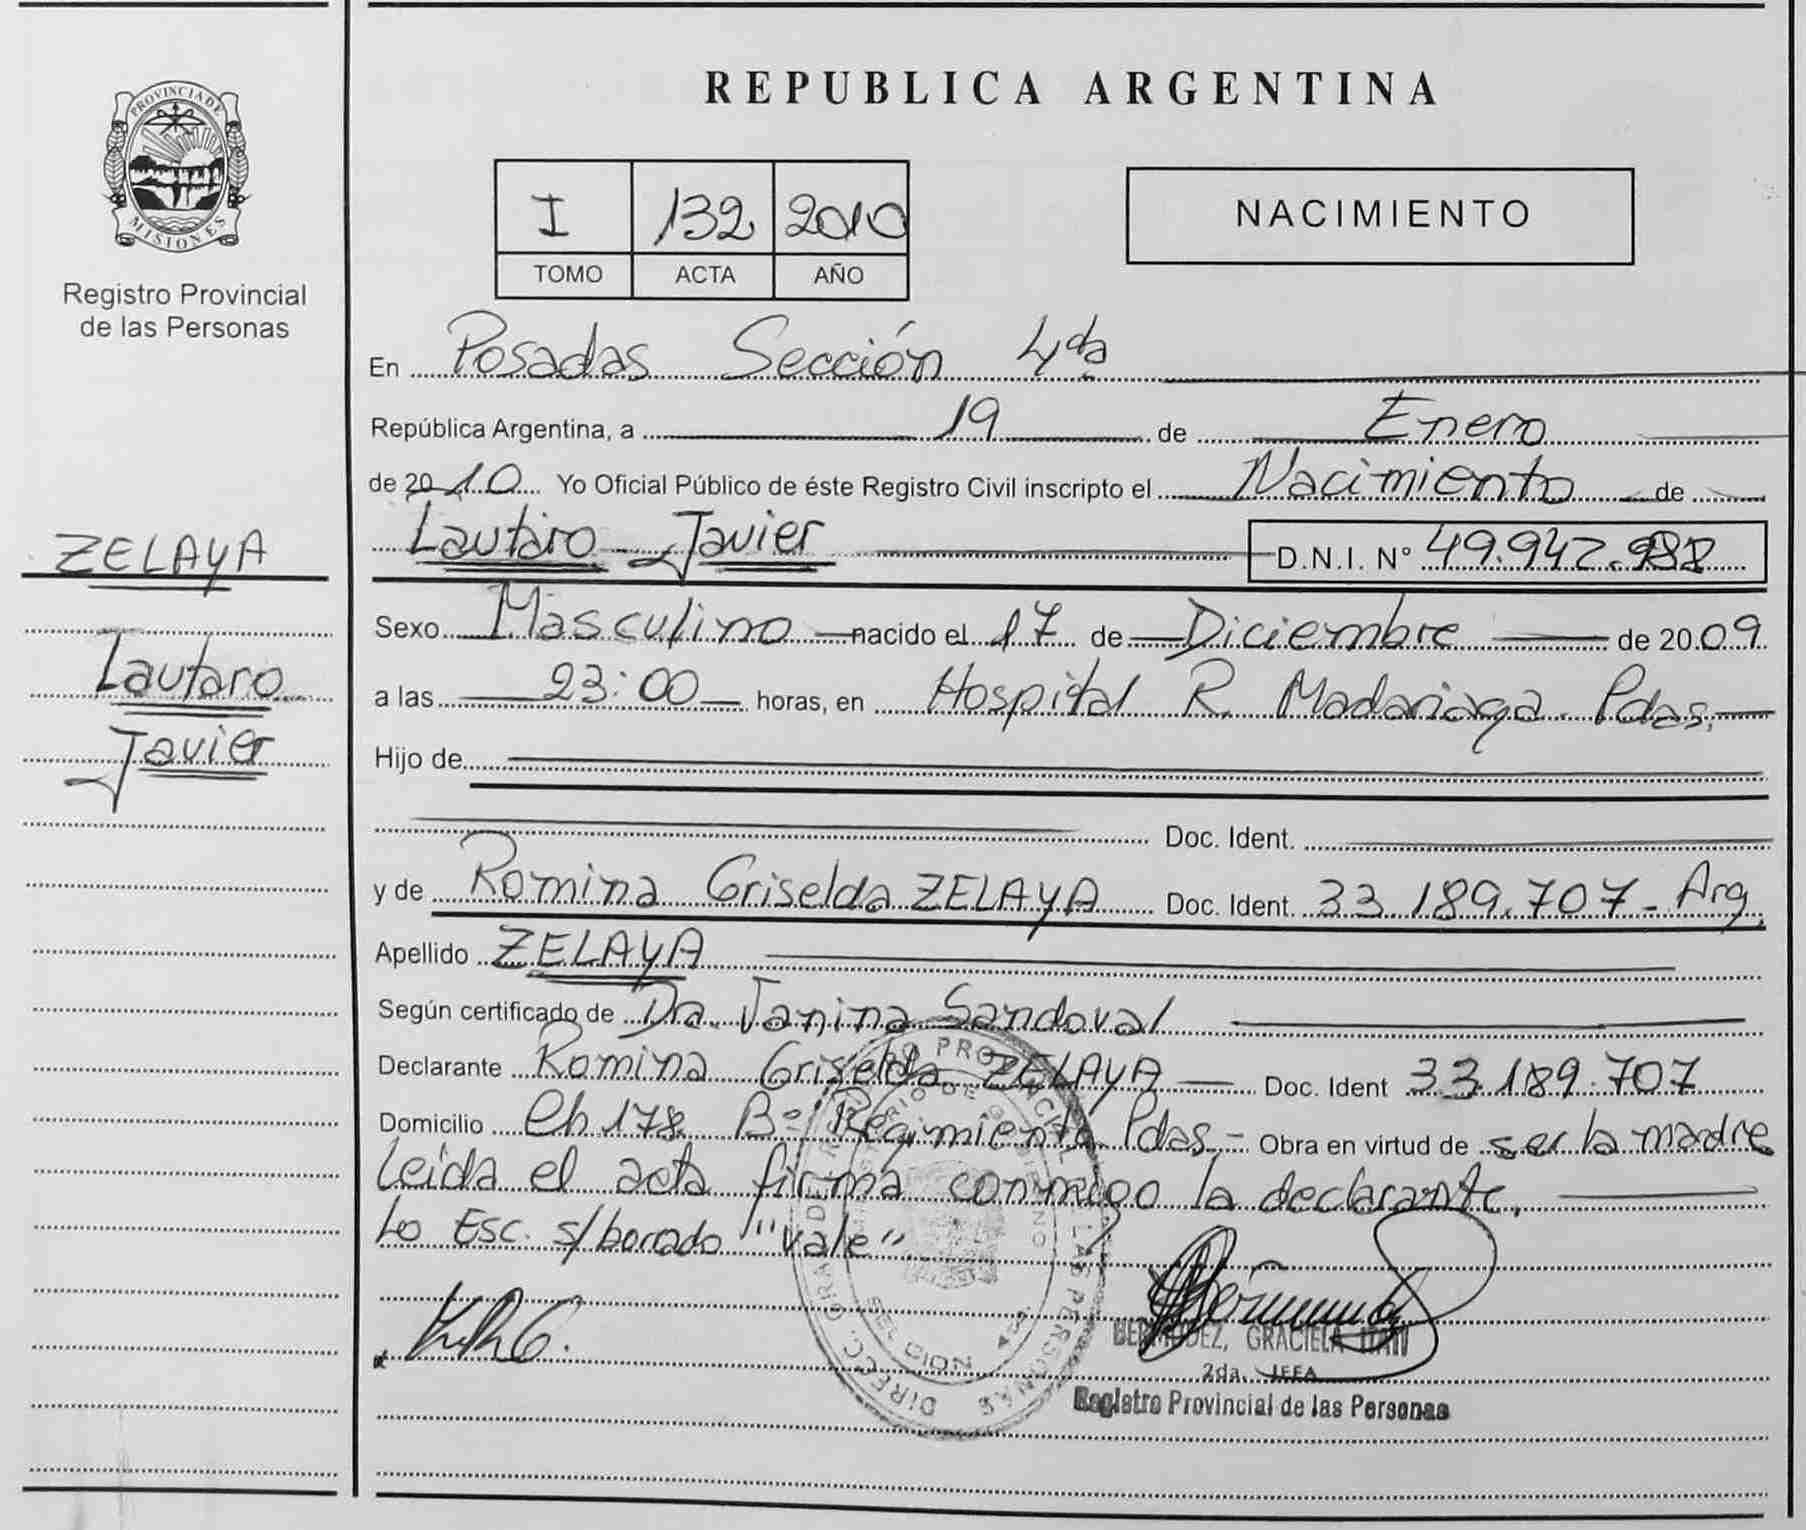 PROVINCIA DE
MISIONES
Registro Provincial
de las Personas
ZELAYA
Lautaro
Javier
REPUBLICA ARGENTINA
I 132 2010
TOMO ACTA AÑO
NACIMIENTO
En Posadas Sección 4da
República Argentina, a 19 de Enero
de 2010 Yo Oficial Público de éste Registro Civil inscripto el Nacimiento de
Lautaro Javier D.N.I. Nº 49.947.987
Sexo Masculino nacido el 17 de Diciembre de 2009
a las 23:00 horas, en Hospital R. Madariaga Pdas.
Hijo de
Doc. Ident.
y de Romina Griselda ZELAYA Doc. Ident. 33.189.707 - Arg.
Apellido ZELAYA
Según certificado de Dra. Janina Sandoval
Declarante Romina Griselda ZELAYA Doc. Ident 33.189.707
Domicilio Ch 178 Bº Regimiento Pdas. - Obra en virtud de ser la madre
Leida el acta firma conmigo la declarante.
Lo Esc. s/borrado "Vale"
BERMUDEZ, GRACIELA
2da. JEFA
Registro Provincial de las Personas